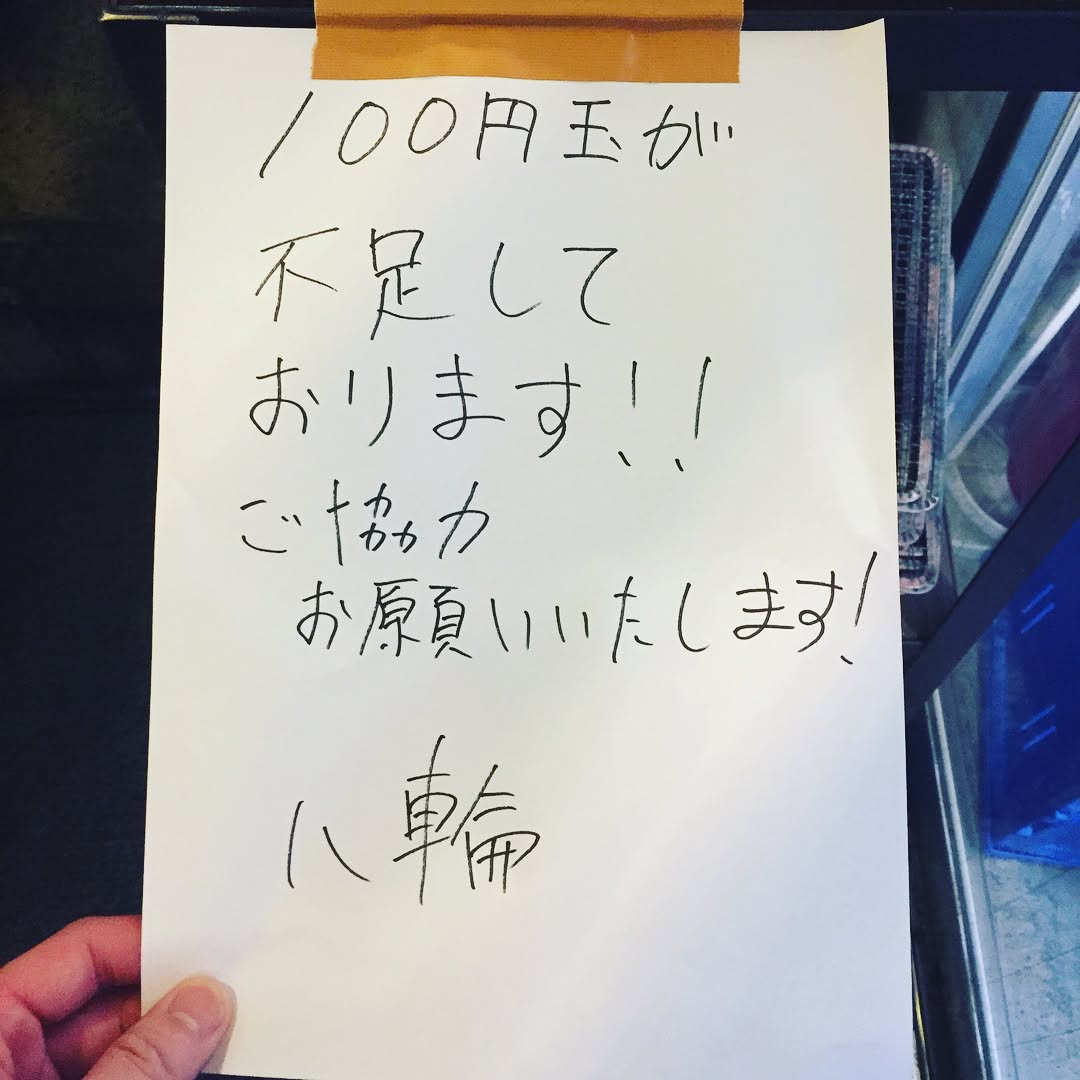 100円玉が
不足して
おります!!
ご協力
お願いいたします!
八輪